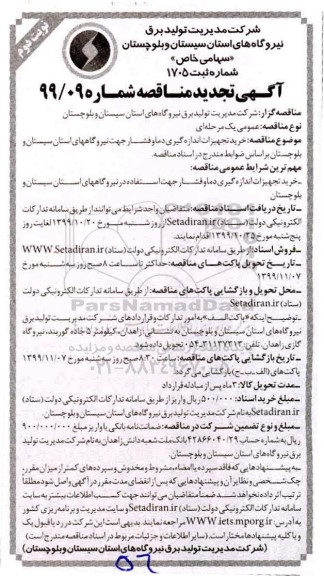 نوبت دوم
شرکت مدیریت تولید برق
نیروگاه‌های استان سیستان و بلوچستان
«سهامی خاص»
شماره ثبت ۱۷۰۵
آگهی تجدید مناقصه شماره ۹۹/۰۹
مناقصه گزار: شرکت مدیریت تولید برق نیروگاه‌های استان سیستان و بلوچستان
نوع مناقصه: عمومی یک مرحله‌ای
موضوع مناقصه: خرید تجهیزات اندازه گیری دما و فشار جهت نیروگاههای استان سیستان و
بلوچستان بر اساس ضوابط مندرج در اسناد مناقصه.
مهم ترین شرایط عمومی مناقصه:
ـ خرید تجهیزات اندازه گیری دما و فشار جهت استفاده در نیروگاههای استان سیستان و
بلوچستان
ـ تاریخ دریافت اسناد مناقصه: متقاضیان واجد شرایط می‌توانند از طریق سامانه تدارکات
الکترونیکی دولت (ستاد) Setadiran.ir از روز شنبه مورخ ۱۳۹۹/۱۰/۲۰ لغایت روز
پنج‌شنبه مورخ ۱۳۹۹/۱۰/۲۵ اقدام نمایند.
ـ فروش اسناد: از طریق سامانه تدارکات الکترونیکی دولت (ستاد) WWW.Setadiran.ir
ـ تاریخ تحویل پاکت‌های مناقصه: حداکثر تا ساعت ۸ صبح روز سه‌شنبه مورخ
۱۳۹۹/۱۱/۰۷
ـ محل تحویل و بازگشایی پاکت‌های مناقصه: از طریق سامانه تدارکات الکترونیکی دولت
(ستاد) Setadiran.ir
توضیح: اینکه «پاکت الف» به امور تدارکات و قراردادهای شرکت مدیریت تولید برق
نیروگاه‌های استان سیستان و بلوچستان به نشانی زاهدان، کیلومتر ۵ جاده گوربند، نیروگاه
گازی زاهدان، تلفن: ۳۱۱۳۷۲۱۳-۰۵۴ تحویل داده شود.
ـ تاریخ بازگشایی پاکت‌های مناقصه: ساعت ۸:۳۰ صبح روز سه‌شنبه مورخ ۱۳۹۹/۱۱/۰۷
پاکت‌های (الف-ب-ج) بازگشایی می‌گردد
ـ مدت تحویل کالا: ۲ ماه پس از مبادله قرارداد
ـ مبلغ خرید اسناد: ۵۰۰/۰۰۰ ریال واریز از طریق سامانه تدارکات الکترونیکی دولت (ستاد)
Setadiran.ir به نام شرکت مدیریت تولید برق نیروگاه‌های استان سیستان و بلوچستان
ـ مبلغ و نوع تضمین شرکت در مناقصه: ضمانت‌نامه بانکی یا واریز مبلغ ۹۰۰/۰۰۰/۰۰۰
ریال به شماره حساب ۴۲۸۶۶۰۴۰/۲۹ بانک ملت شعبه دانش زاهدان به نام شرکت مدیریت تولید
برق نیروگاه‌های استان سیستان و بلوچستان.
ـ به پیشنهادهایی که فاقد سپرده یا امضاء، مشروط و مخدوش و سپرده‌های کمتر از میزان مقرر،
چک شخصی و نظایر آن و پیشنهادهایی که پس از انقضای مدت مقرر در آگهی واصل شود مطلقا
ترتیب اثر داده نخواهد شد. ضمناً متقاضیان می‌توانند جهت کسب اطلاعات بیشتر به سایت
سامانه تدارکات الکترونیکی دولت (ستاد) Setadiran.ir و سایت مدیریت و برنامه‌ریزی کشور
به آدرس: WWW.iets.mporg.ir مراجعه نمایند. بدیهی است این شرکت در رد یا قبول یک
و یا کلیه پیشنهادها مختار است. (سایر اطلاعات و جزئیات مربوط در اسناد مناقصه مندرج است)
(شرکت مدیریت تولید برق نیروگاه‌های استان سیستان و بلوچستان)
ParsNamadData
۰۲۱-۸۸۳۴۹۶۷۰